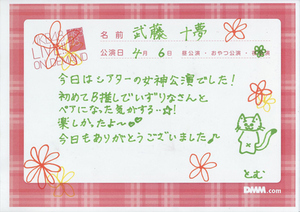 LIVE!!
ON DEMAND
名前 武藤 十夢
公演日 4月6日 昼公演・おやつ公演・夜公演
今日はシアターの女神公演でした!
初めてB推しでいずりなさんと
ペアになった気がする…☆!
楽しかったよ〜♡
今日もありがとうございました♪
とむ
DMM.com